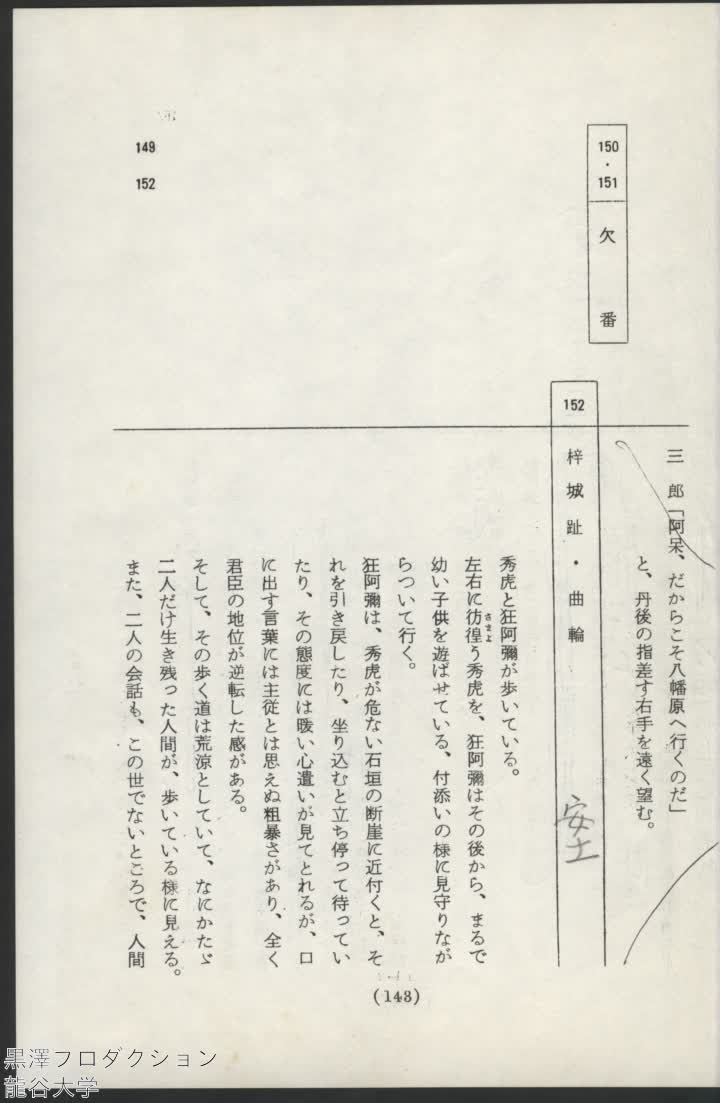 三　郎「阿呆、だからこそ八幡原へ行くのだ」
と、丹後の指差す右手を遠く望む。
150・151　欠　番
152　梓城趾・曲輪
安土
秀虎と狂阿彌が歩いている。
左右に彷徨う秀虎を、狂阿彌はその後から、まるで
さまよ
幼い子供を遊ばせている、付添いの様に見守りなが
らついて行く。
狂阿彌は、秀虎が危ない石垣の断崖に近付くと、そ
れを引き戻したり、坐り込むと立ち停って待ってい
たり、その態度には暖い心遣いが見てとれるが、口
に出す言葉には主従とは思えぬ粗暴さがあり、全く
君臣の地位が逆転した感がある。
そして、その歩く道は荒涼としていて、なにかたゞ
二人だけ生き残った人間が、歩いている様に見える。
また、二人の会話も、この世でないところで、人間
149
152
(143)
黒澤プロダクション
龍谷大学